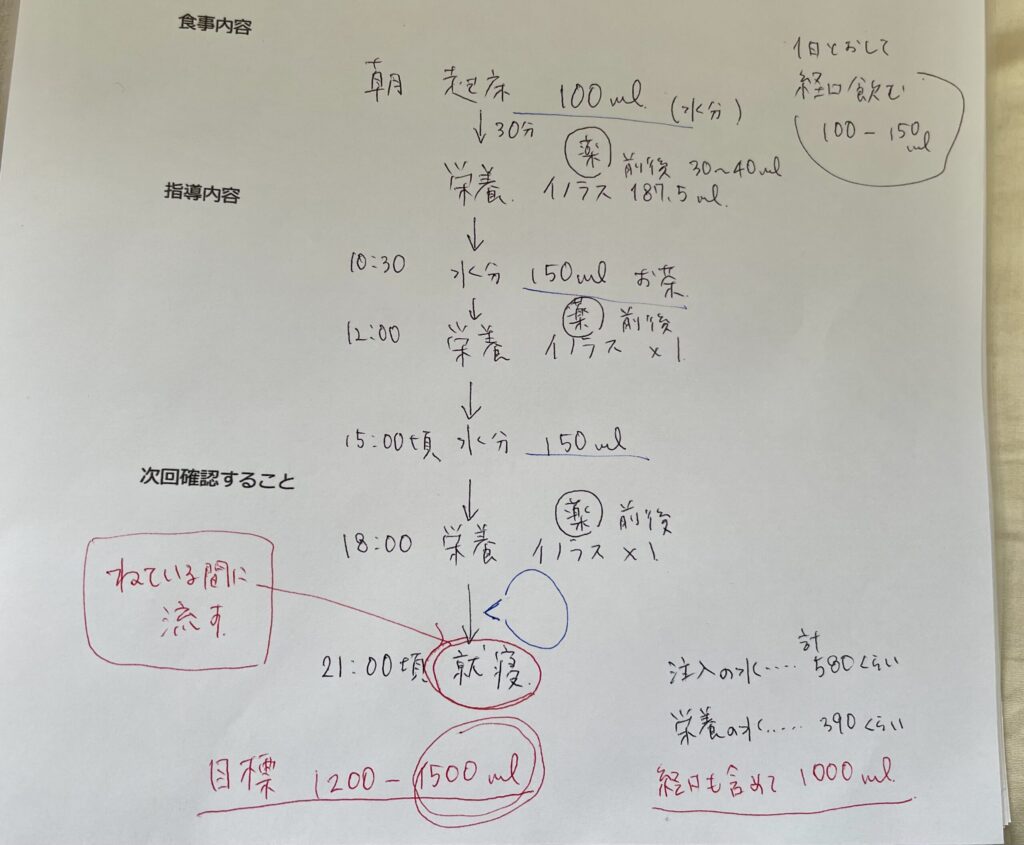 食事内容
1日とおして
経口飲む
100-150ml
朝 起床 100ml (水分)
↓30分
薬 前後 30~40ml
栄養 イノラス 187.5ml
指導内容
↓
10:30 水分 150ml お茶
↓
薬 前後
12:00 栄養 イノラス ×1
↓
15:00頃 水分 150ml
次回確認すること
↓
薬 前後
18:00 栄養 イノラス ×1
↓
ねている間に
流す
21:00頃 就寝
計
注入の水..... 580くらい
栄養の水..... 390くらい
経口も含めて 1000ml
目標 1200-1500ml